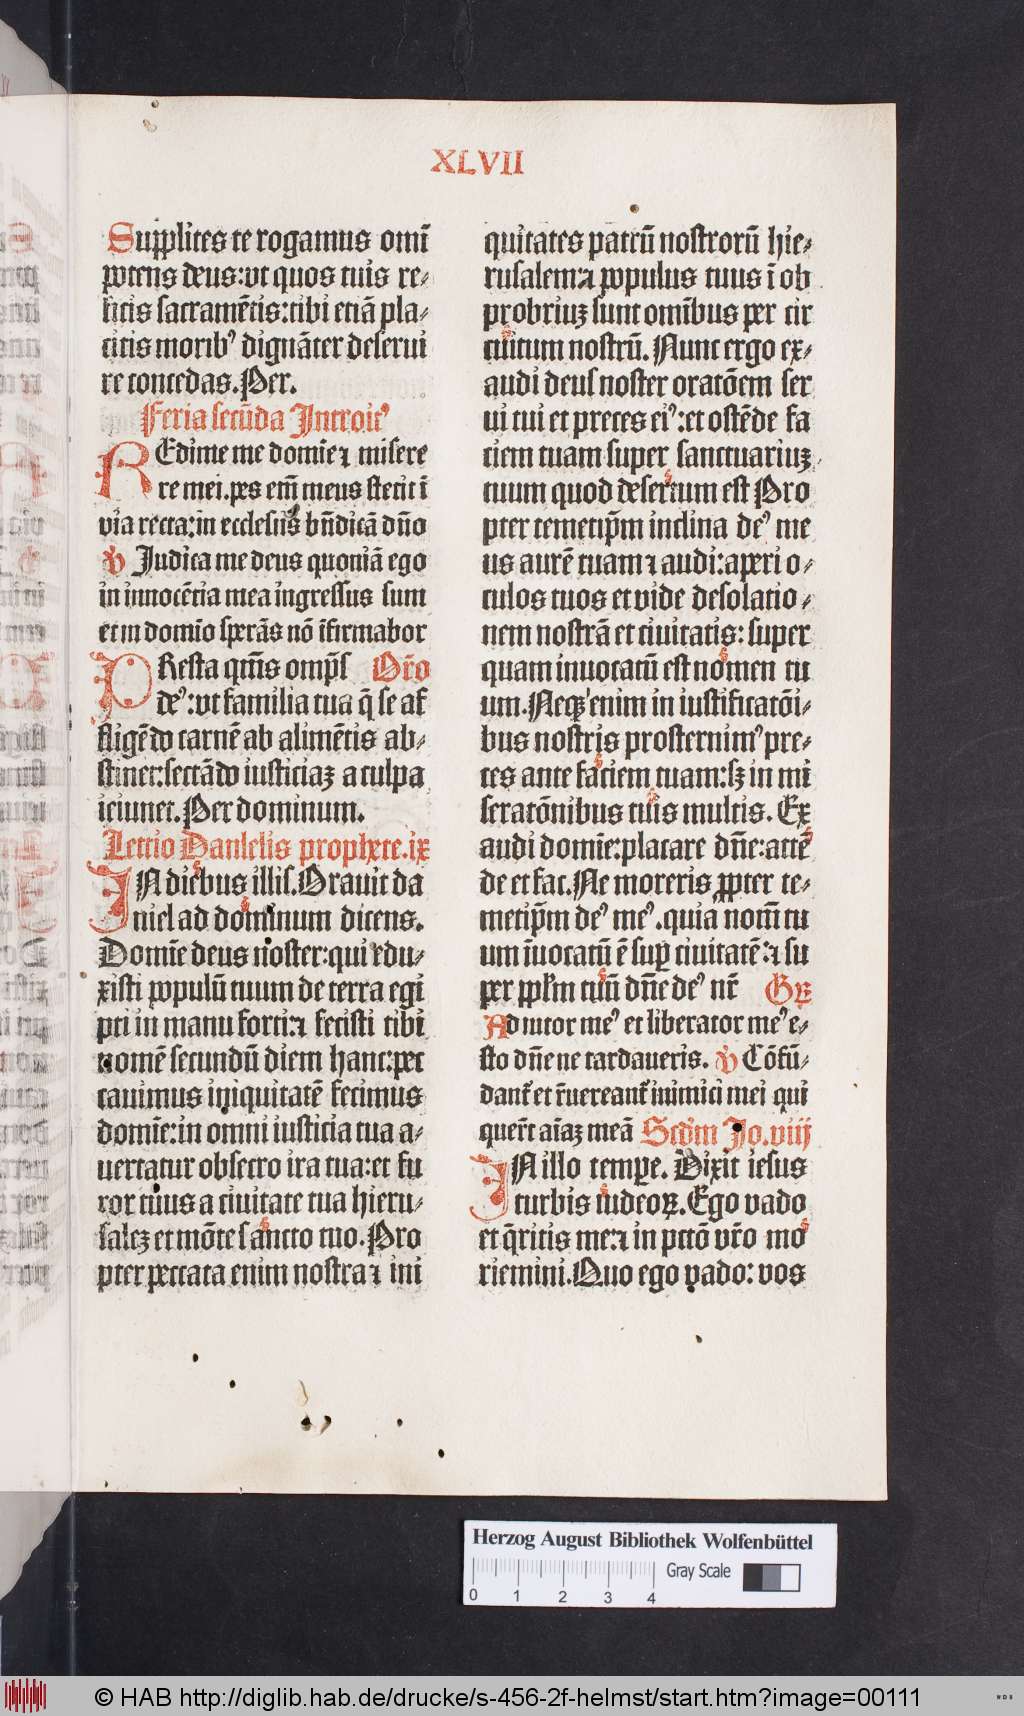 XLVII
Supplites te rogamus omī
potens deus:vt quos tuis re-
ficis sacramētis:tibi etiā pla-
citis moribꝰ dignāter deserui
re concedas.Per.
Feria secūda Introitꝰ
REdime me domīe ⁊ misere
re mei.pes em̄ meus stetit ī
via recta:in ecclesiis bn̄dicā dn̄o
℣ Judica me deus quoniā ego
in innocētia mea ingressus sum
et in domīo sperās nō īfirmabor
PResta qm̄s omp̄s Or̄o
deꝰ:vt familia tua q̄ se af
fligēdo carnē ab alimētis ab-
stinet:sectādo iusticiaꝫ a culpa
ieiunet.Per dominum.
Lectio Danielis prophete.ix
IN diebus illis.Orauit da
niel ad dominum dicens.
Domīe deus noster:qui edu-
xisti populū tuum de terra egi
pti in manu forti:⁊ fecisti tibi
nomē secundū diem hanc:pec
cauimus iniquitatē fecimus
domīe:in omni iusticia tua a-
uertatur obsecro ira tua:et fu
ror tuus a ciuitate tua hieru-
saleꝫ et mōte sancto tuo.Pro
pter peccata enim nostra ⁊ ini
quitates patrū nostrorū hie-
rusalem:⁊ populus tuus ī ob
probriuꝫ sunt omībus per cir
cuitum nostrū.Nunc ergo ex-
audi deus noster oratōem ser
ui tui et preces eiꝰ:et ostēde fa
ciem tuam super sanctuariuꝫ
tuum quod desertum est Pro
pter temetip̄m inclina deꝰ me
us aurē tuam ⁊ audi:aperi o-
culos tuos et vide desolatio-
nem nostrā et ciuitatis:super
quam inuocatū est nomen tu
um.Neqꝫ enim in iustificatōi-
bus nostris prosternimꝰ pre-
ces ante faciem tuam:sꝫ in mi
seratōnibus tuis multis.Ex
audi domīe:placare dn̄e:attē
de et fac.Ne moreris ꝓpter te-
metip̄m deꝰ meꝰ.quia nom̄ tu
um īuocatū ē suꝑ ciuitatē:⁊ su
per pplm̄ tuū dn̄e deꝰ nr̄ Gꝝ
Adiutor meꝰ et liberator meꝰ e-
sto dn̄e ne tardaueris. ℣ Cōfū-
dant᷑ et r̄uereant᷑ inimici mei qui
quer̄t aīaꝫ meā Scd̄m Jo.viij
IN illo tempe. Dixit iesus
turbis iudeoꝝ.Ego vado
et q̄ritis me:⁊ in pctō vr̄o mo
riemini.Quo ego vado:vos
Herzog August Bibliothek Wolfenbüttel
0 1 2 3 4
Gray Scale
© HAB http://diglib.hab.de/drucke/s-456-2f-helmst/start.htm?image=00111